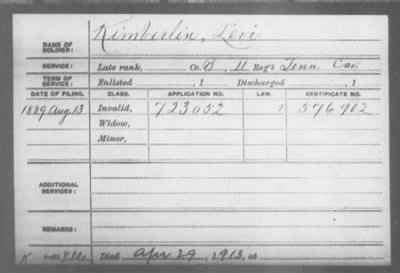 NAME OF SOLDIER: Kimberlin, Levi
SERVICE: Late rank, Co. B, 11 Reg't Tenn. Cav.
TERM OF SERVICE: Enlisted , 1 Discharged , 1
DATE OF FILING. CLASS. APPLICATION NO. LAW. CERTIFICATE NO.
1889 Aug. 13 Invalid, 723052 576902
Widow,
Minor,
ADDITIONAL SERVICES:
REMARKS:
Died Apr 29, 1913, at